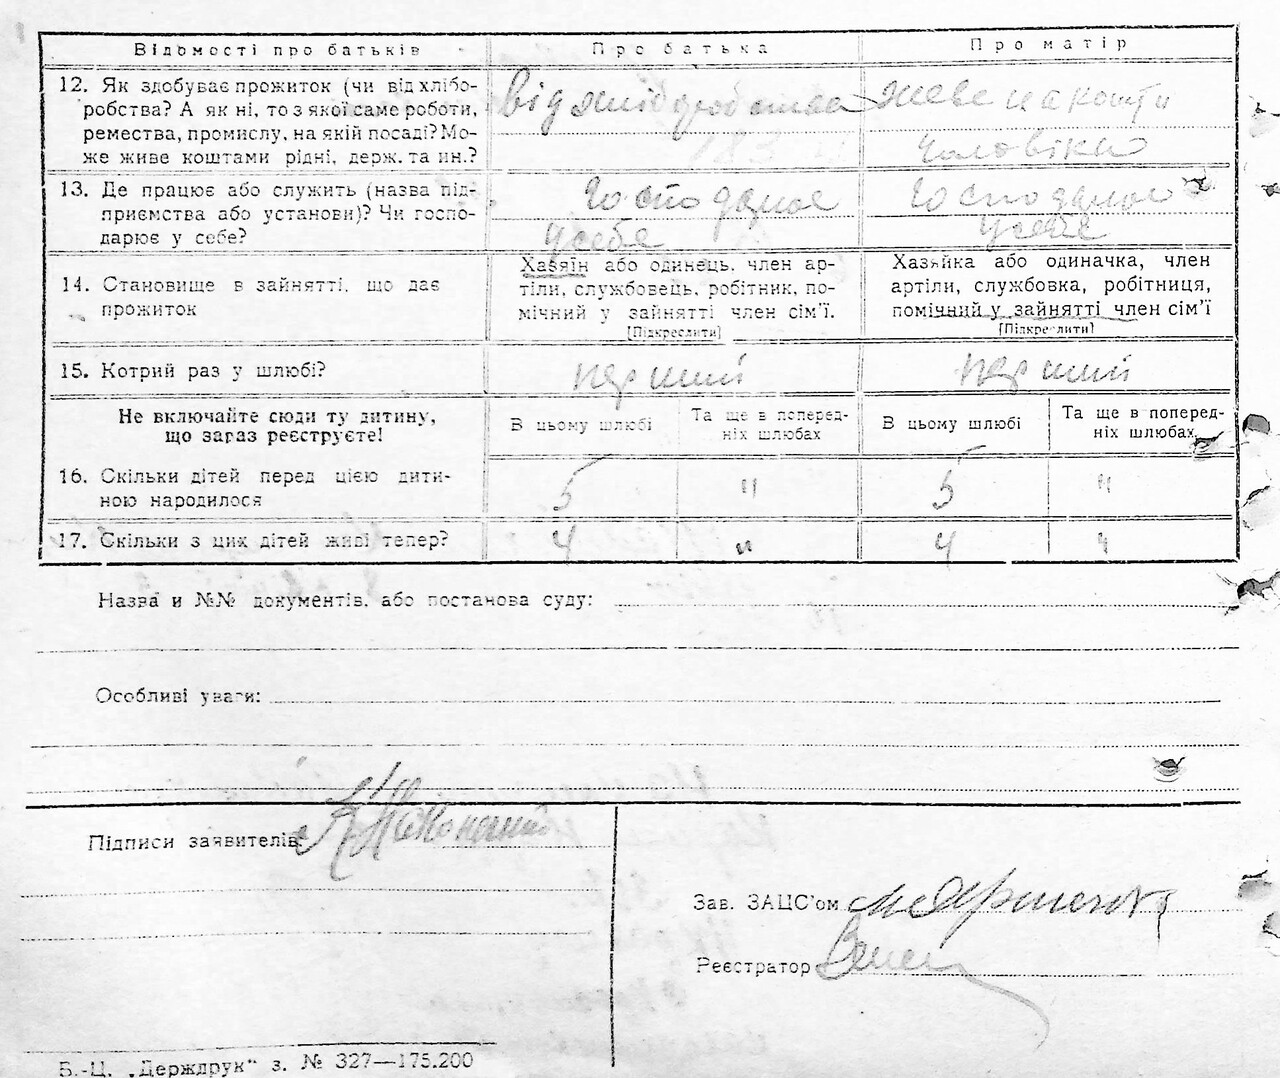 Відомості про батьків Про батька Про матір
12. Як здобуває прожиток (чи від хлібо-
робства? А як ні, то з якої саме роботи,
ремества, промислу, на якій посаді? Мо-
же живе коштами рідні, держ. та ин.?
від хліборобства
живе на кошти
чоловіка
13. Де працює або служить (назва під-
приємства або установи)? Чи госпо-
дарює у себе?
господарює
у себе
господарює
у себе
14. Становище в зайнятті, що дає
прожиток
Хазяїн або одинець, член ар-
тіли, службовець, робітник, по-
мічний у зайнятті член сім'ї.
[Підкреслити]
Хазяйка або одиначка, член
артіли, службовка, робітниця,
помічний у зайнятті член сім'ї
[Підкреслити]
15. Котрий раз у шлюбі? перший перший
Не включайте сюди ту дитину,
що зараз реєструєте!
В цьому шлюбі
Та ще в поперед-
ніх шлюбах
В цьому шлюбі
Та ще в поперед-
ніх шлюбах
16. Скільки дітей перед цією дити-
ною народилося
5 " 5 "
17. Скільки з цих дітей живі тепер? 4 " 4 "
Назва и №№ документів, або постанова суду:
Особливі уваги:
Підписи заявителів
Зав. ЗАЦС'ом
Реєстратор
Б.-Ц. „Держдрук" з. № 327—175.200